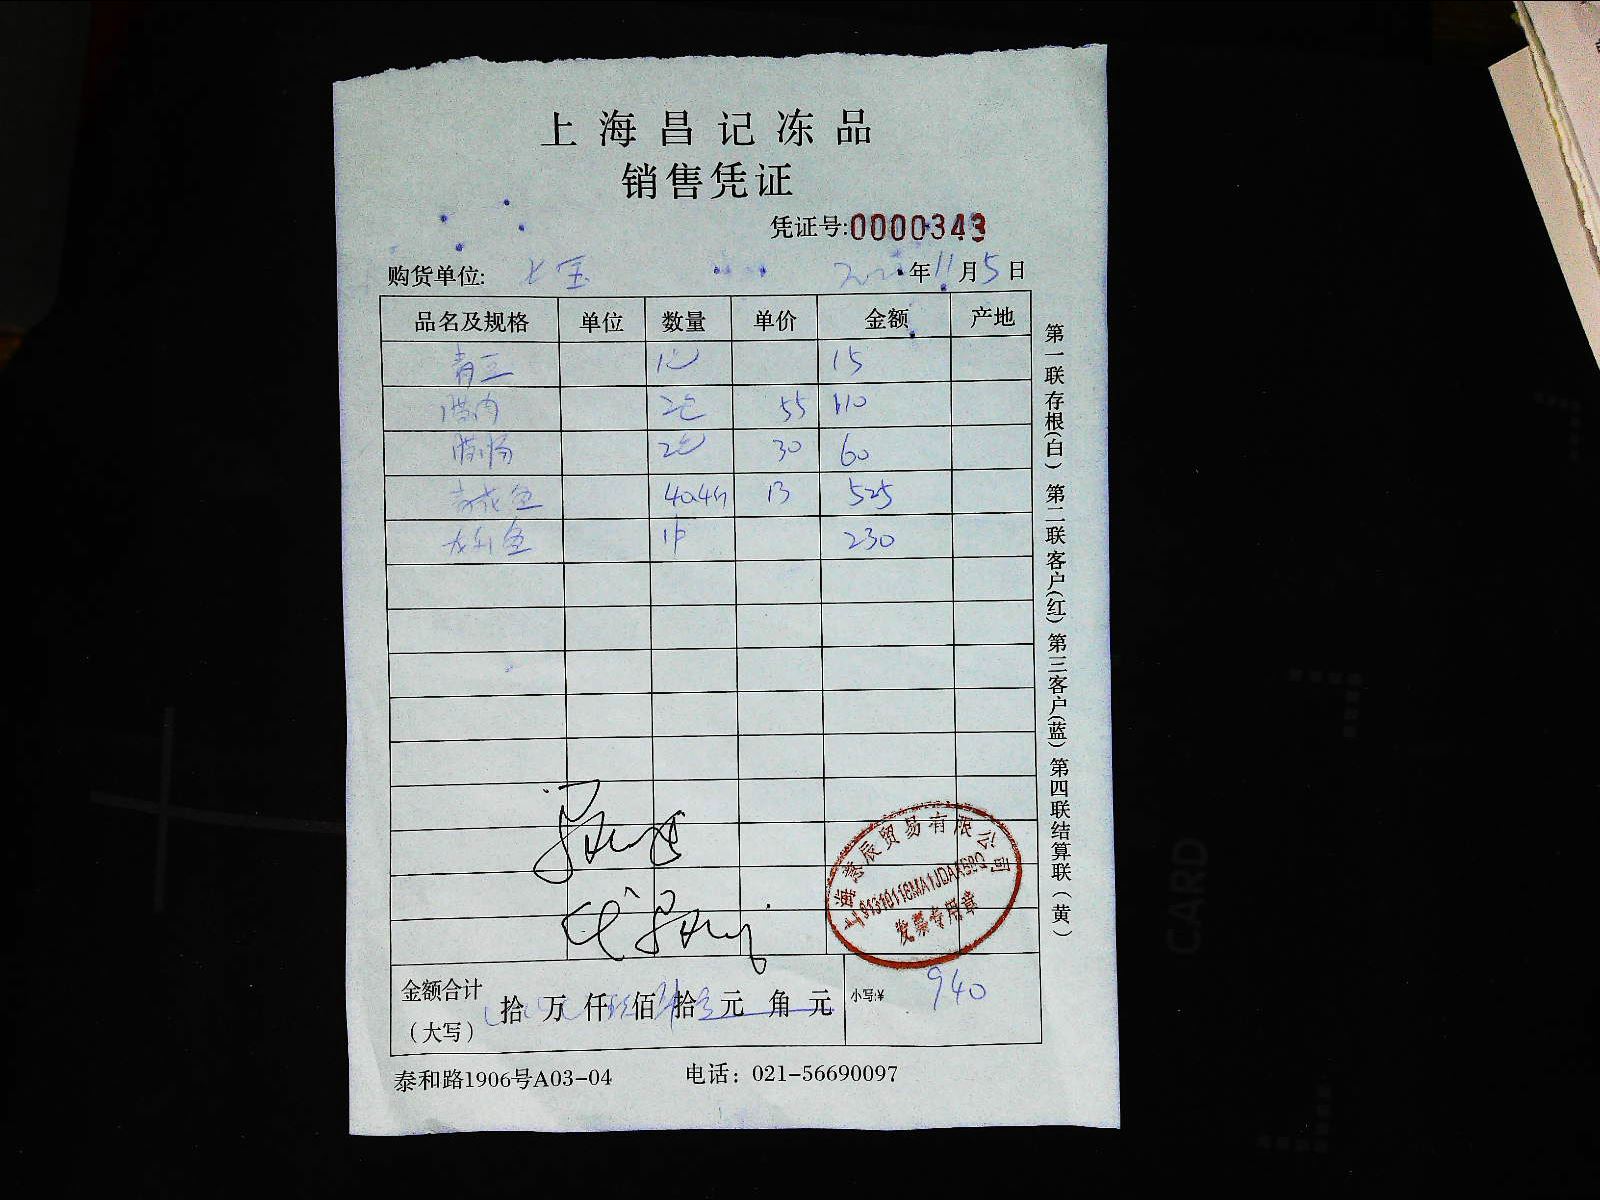 上海昌记冻品
销售凭证
凭证号:0000343
购货单位: 七宝 年11月5日
品名及规格 单位 数量 单价 金额 产地
青豆 1包 15
腊肉 2包 55 110
腊肠 2包 30 60
鱼 40.4斤 13 525
龙利鱼 1件 230
金额合计
(大写)
拾 万 仟 佰 拾 元 角 元 小写:¥ 940
泰和路1906号A03-04 电话：021-56690097
第一联存根(白) 第二联客户(红) 第三客户(蓝) 第四联结算联(黄)
贸易有限公司
发票专用章
CARD